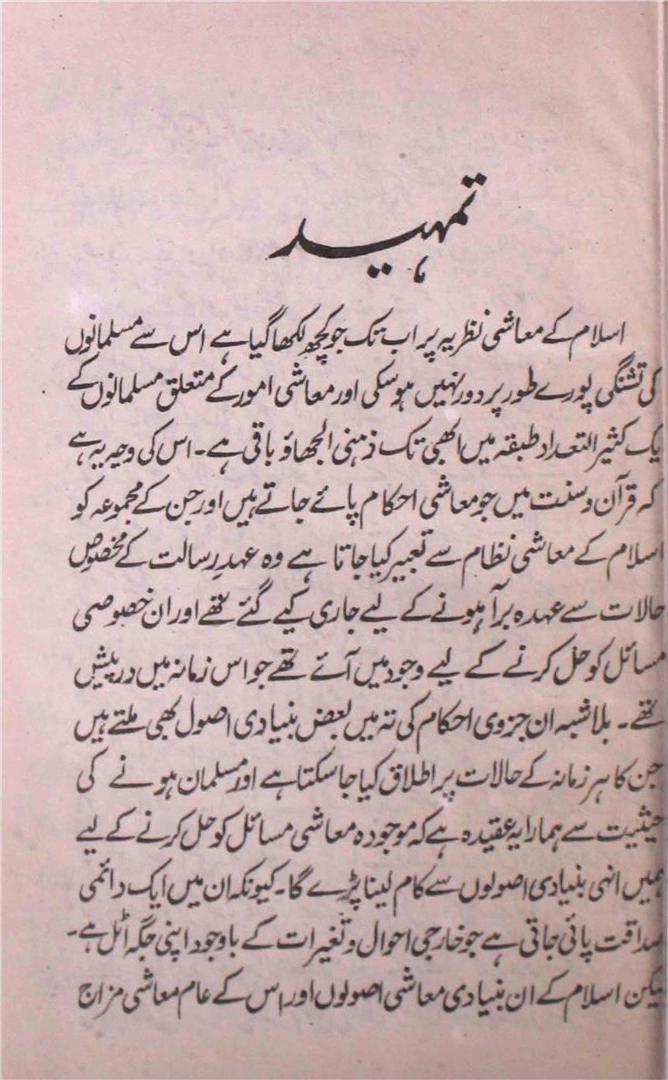 تمہید
اسلام کے معاشی نظریہ پر اب تک جو کچھ لکھا گیا ہے اس سے مسلمانوں
کی تشنگی پورے طور پر دور نہیں ہو سکی اور معاشی امور کے متعلق مسلمانوں کے
یک کثیر التعداد طبقہ میں ابھی تک ذہنی الجھاؤ باقی ہے۔ اس کی وجہ یہ ہے
کہ قرآن و سنت میں جو معاشی احکام پائے جاتے ہیں اور جن کے مجموعہ کو
اسلام کے معاشی نظام سے تعبیر کیا جاتا ہے وہ عہدِ رسالت کے مخصوص
حالات سے عہدہ برآ ہونے کے لیے جاری کیے گئے تھے اور ان خصوصی
مسائل کو حل کرنے کے لیے وجود میں آئے تھے جو اس زمانہ میں درپیش
تھے۔ بلاشبہ ان جزوی احکام کی تہ میں بعض بنیادی اصول بھی ملتے ہیں
جن کا ہر زمانہ کے حالات پر اطلاق کیا جا سکتا ہے اور مسلمان ہونے کی
حیثیت سے ہمارا یہ عقیدہ ہے کہ موجودہ معاشی مسائل کو حل کرنے کے لیے
ہمیں انہی بنیادی اصولوں سے کام لینا پڑے گا۔ کیونکہ ان میں ایک دائمی
صداقت پائی جاتی ہے جو خارجی احوال و تغیرات کے باوجود اپنی جگہ اٹل ہے۔
لیکن اسلام کے ان بنیادی معاشی اصولوں اور اس کے عام معاشی مزاج